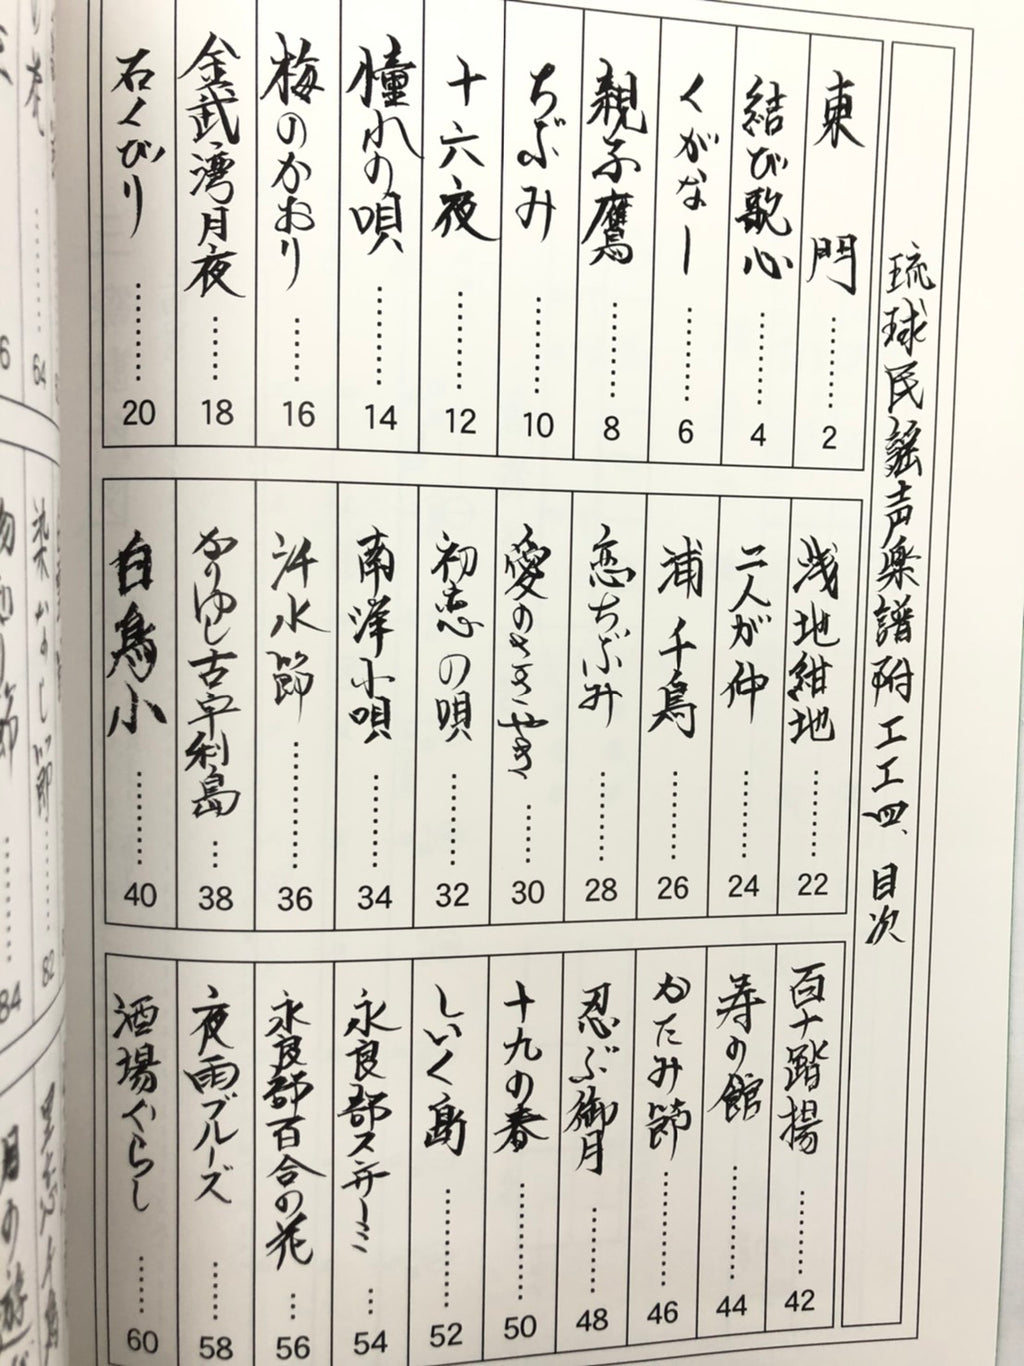 琉球民謡声楽譜附工工四、目次
東門 ……… 2
結び歌心 ……… 4
くがなー ……… 6
親子鷹 ……… 8
ちぶみ ……… 10
十六夜 ……… 12
憧れの唄 ……… 14
梅のかおり ……… 16
金武湾月夜 ……… 18
石くびり ……… 20
浅地紺地 ……… 22
二人が仲 ……… 24
浦千鳥 ……… 26
恋ちぶみ ……… 28
愛のささやき ……… 30
初恋の唄 ……… 32
南洋小唄 ……… 34
汗水節 ……… 36
かりゆし古宇利島 … 38
白鳥小 ……… 40
百十踏揚 ……… 42
寿の館 ……… 44
かたみ節 ……… 46
忍ぶ御月 ……… 48
十九の春 ……… 50
しいく島 ……… 52
永良部スンサーミ … 54
永良部百合の花 … 56
夜雨ブルーズ ……… 58
酒場ぐらし ……… 60
64
82
84